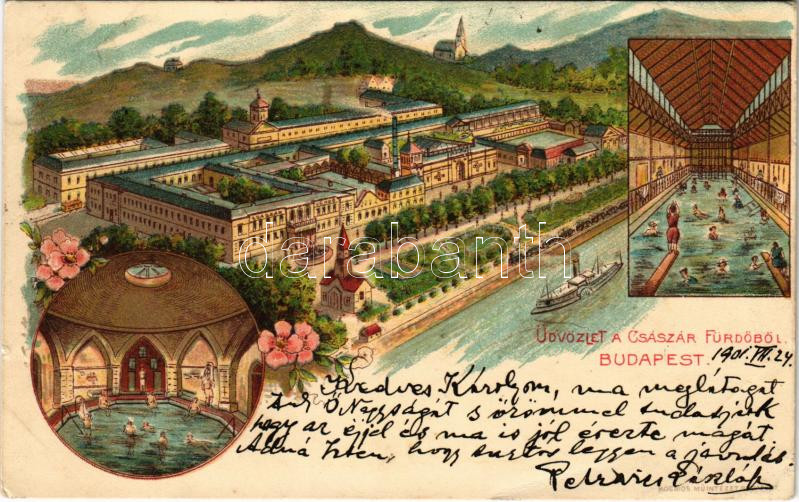 ÜDVÖZLET A CSÁSZÁR FÜRDŐBŐL.
BUDAPEST. 1901. VII. 24
Kedves Károlyom, ma meglátogat
Ő Nagyságát s örömmel tudatjuk
hogy az éjjel és ma is jól érezte magát
Adná Isten, hogy tartós legyen a javulás
László
KOSMOS MŰINTÉZET
darabanth